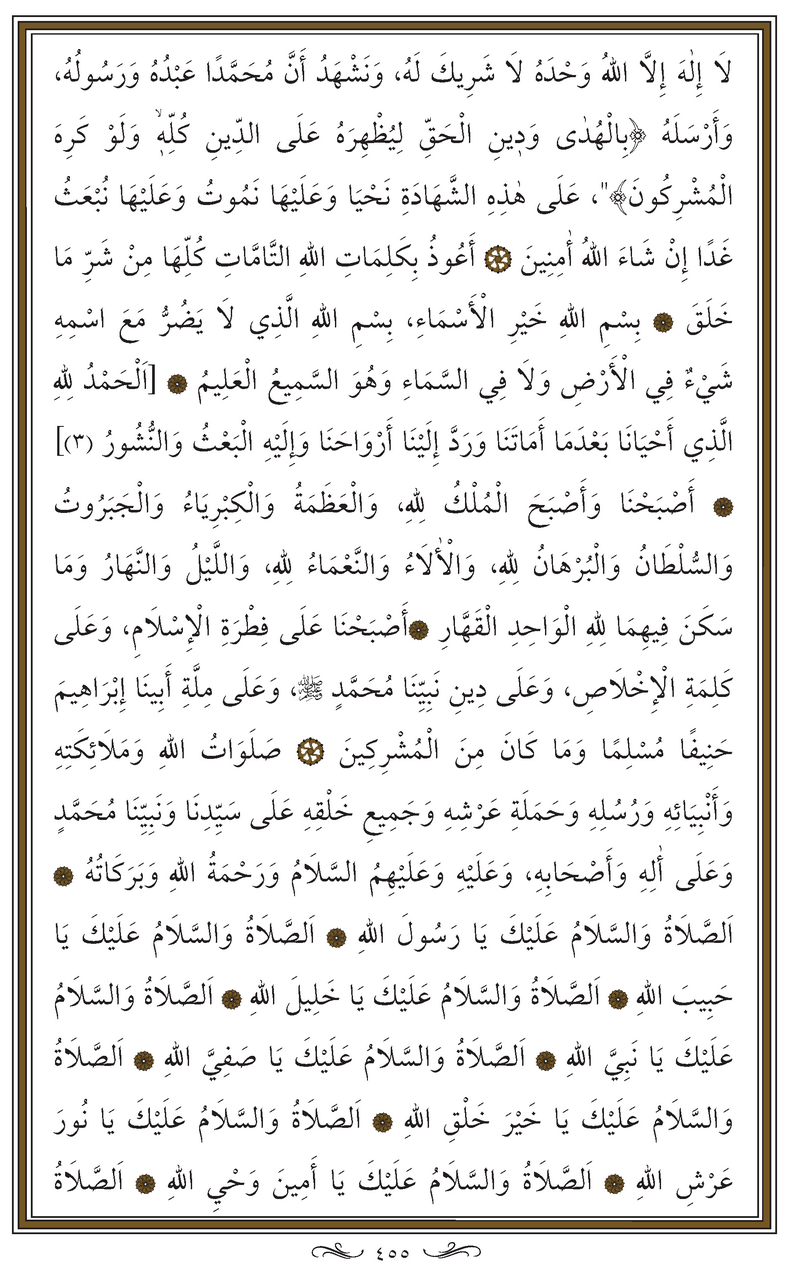 لَا إِلٰهَ إِلَّا اللهُ وَحْدَهُ لَا شَرِيكَ لَهُ، وَنَشْهَدُ أَنَّ مُحَمَّدًا عَبْدُهُ وَرَسُولُهُ،
وَأَرْسَلَهُ ﴿بِالْهُدٰى وَدٖينِ الْحَقِّ لِيُظْهِرَهُ عَلَى الدّٖينِ كُلِّهٖۙ وَلَوْ كَرِهَ
الْمُشْرِكُونَ﴾"، عَلَى هٰذِهِ الشَّهَادَةِ نَحْيَا وَعَلَيْهَا نَمُوتُ وَعَلَيْهَا نُبْعَثُ
غَدًا إِنْ شَاءَ اللهُ أٰمِنِينَ ۞ أَعُوذُ بِكَلِمَاتِ اللهِ التَّامَّاتِ كُلِّهَا مِنْ شَرِّ مَا
خَلَقَ ۞ بِسْمِ اللهِ خَيْرِ الْأَسْمَاءِ، بِسْمِ اللهِ الَّذِي لَا يَضُرُّ مَعَ اسْمِهِ
شَيْءٌ فِي الْأَرْضِ وَلَا فِي السَّمَاءِ وَهُوَ السَّمِيعُ الْعَلِيمُ ۞ [اَلْحَمْدُ لِلهِ
الَّذِي أَحْيَانَا بَعْدَمَا أَمَاتَنَا وَرَدَّ إِلَيْنَا أَرْوَاحَنَا وَإِلَيْهِ الْبَعْثُ وَالنُّشُورُ (٣)]
۞ أَصْبَحْنَا وَأَصْبَحَ الْمُلْكُ لِلهِ، وَالْعَظَمَةُ وَالْكِبْرِيَاءُ وَالْجَبَرُوتُ
وَالسُّلْطَانُ وَالْبُرْهَانُ لِلهِ، وَالْأٰلَاءُ وَالنَّعْمَاءُ لِلهِ، وَاللَّيْلُ وَالنَّهَارُ وَمَا
سَكَنَ فِيهِمَا لِلهِ الْوَاحِدِ الْقَهَّارِ ۞ أَصْبَحْنَا عَلَى فِطْرَةِ الْإِسْلَامِ، وَعَلَى
كَلِمَةِ الْإِخْلَاصِ، وَعَلَى دِينِ نَبِيِّنَا مُحَمَّدٍ ﷺ، وَعَلَى مِلَّةِ أَبِينَا إِبْرَاهِيمَ
حَنِيفًا مُسْلِمًا وَمَا كَانَ مِنَ الْمُشْرِكِينَ ۞ صَلَوَاتُ اللهِ وَمَلَائِكَتِهِ
وَأَنْبِيَائِهِ وَرُسُلِهِ وَحَمَلَةِ عَرْشِهِ وَجَمِيعِ خَلْقِهِ عَلَى سَيِّدِنَا وَنَبِيِّنَا مُحَمَّدٍ
وَعَلَى أٰلِهِ وَأَصْحَابِهِ، وَعَلَيْهِ وَعَلَيْهِمُ السَّلَامُ وَرَحْمَةُ اللهِ وَبَرَكَاتُهُ ۞
اَلصَّلَاةُ وَالسَّلَامُ عَلَيْكَ يَا رَسُولَ اللهِ ۞ اَلصَّلَاةُ وَالسَّلَامُ عَلَيْكَ يَا
حَبِيبَ اللهِ ۞ اَلصَّلَاةُ وَالسَّلَامُ عَلَيْكَ يَا خَلِيلَ اللهِ ۞ اَلصَّلَاةُ وَالسَّلَامُ
عَلَيْكَ يَا نَبِيَّ اللهِ ۞ اَلصَّلَاةُ وَالسَّلَامُ عَلَيْكَ يَا صَفِيَّ اللهِ ۞ اَلصَّلَاةُ
وَالسَّلَامُ عَلَيْكَ يَا خَيْرَ خَلْقِ اللهِ ۞ اَلصَّلَاةُ وَالسَّلَامُ عَلَيْكَ يَا نُورَ
عَرْشِ اللهِ ۞ اَلصَّلَاةُ وَالسَّلَامُ عَلَيْكَ يَا أَمِينَ وَحْيِ اللهِ ۞ اَلصَّلَاةُ
٤٥٥